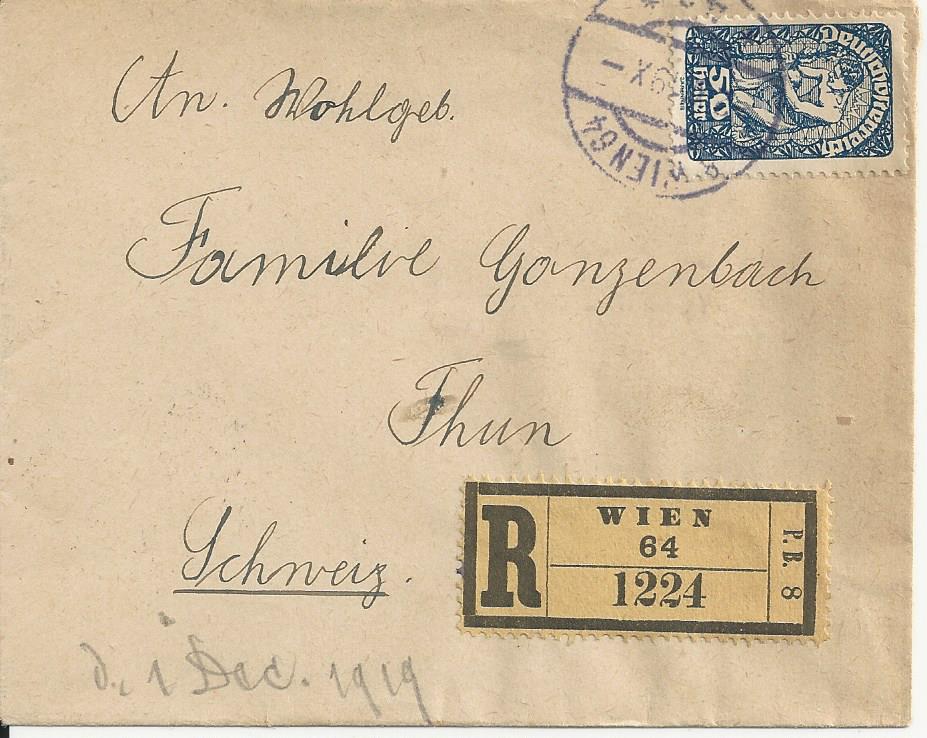 An. Wohlgeb.
Familie Ganzenbach
Thun
Schweiz.
R
WIEN
64
1224
P. B. 8
d. 1 Dec. 1919
Deutschösterreich
50
Heller
WIEN 64